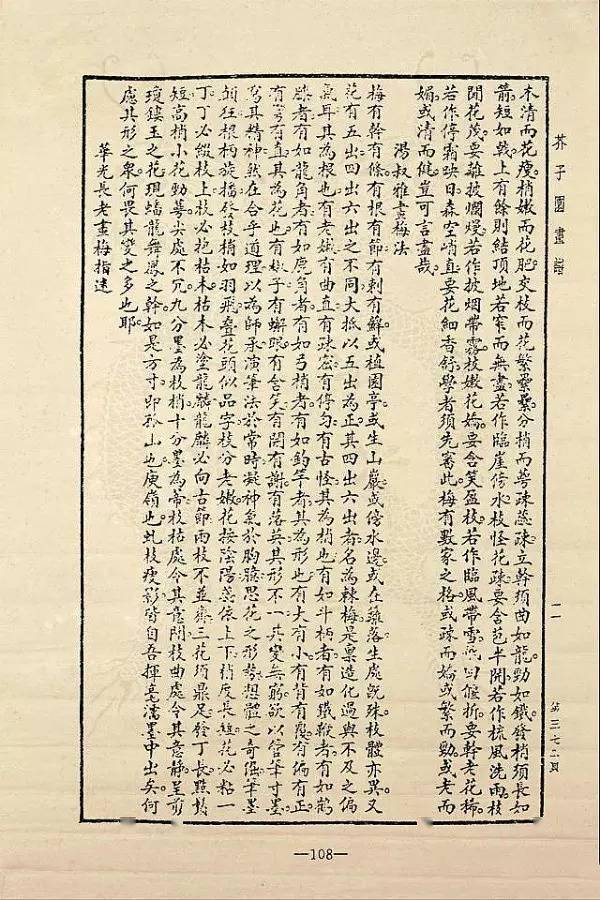 芥子園畫譜
木清而花瘦。梢嫩而花肥。交枝而花繁纍纍。分梢而萼疎蕊疎。立幹須曲如龍。勁如鐵。發梢須長如
箭。短如戟。上有餘則結頂。地若窄而無盡。若作臨崖傍水。枝怪花疎。要含苞半開。若作梳風洗雨。枝
閒花茂。要離披爛熳。若作披烟帶霧。枝嫩花嬌。要含笑盈枝。若作臨風帶雪。低回偃折。要幹老花稀。
若作停霜映日。森空峭直。要花細香舒。學者須先審此。梅有數家之格。或疎而嬌。或繁而勁。或老而
媚。或清而健。豈可言盡哉。
湯叔雅畫梅法
梅有幹有條。有根有節。有刺有蘚。或植園亭。或生山巖。或傍水邊。或在籬落。生處既殊。枝體亦異。又
花有五出四出六出之不同。大抵以五出為正。其四出六出者。名為棘梅。是稟造化過與不及之偏
氣耳。其為根也。有老嫩。有曲直。有疎密。有停勻。有古怪。其為梢也。有如斗柄者。有如鐵鞭者。有如鶴
膝者。有如龍角者。有如鹿角者。有如弓梢者。有如釣竿者。其為形也。有大有小。有背有覆。有偏有正。
有彎有直。其為花也。有椒子。有蟹眼。有含笑。有開有謝。有落英。其形不一。其變無窮。欲以管筆寸墨。
寫其精神。然在合乎道理。以為師承。演筆法於常時。凝神氣於胸臆。思花之形勢。想體之奇倔。筆墨
顛狂。根柄旋播。發枝梢如羽飛。叠花頭似品字。枝分老嫩。花按陰陽。蕊依上下。梢度長短。花必粘一
丁。丁必綴枝上。枝必抱枯木。枯木必塗龍鱗。龍鱗必向古節。兩枝不並齊。三花須鼎足。發丁長。點鬚
短。高梢小花勁。萼尖處不冗。九分墨為枝梢。十分墨為蒂。枝枯處令其意閒。枝曲處令其意靜。呈剪
瓊鏤玉之花。現蟠龍舞鳳之幹。如是方寸即孤山也。庾嶺也。虬枝瘦影。皆自吾揮毫濡墨中出矣。何
慮其形之衆。何畏其變之多也耶。
華光長老畫梅指迷
一一
第三七二頁
—108—